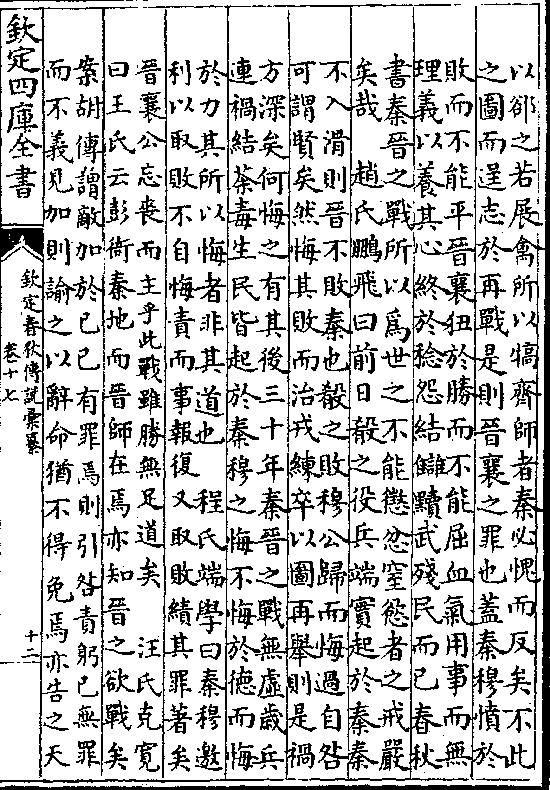 以郤之若展禽所以犒齊師者秦必愧而反矣不此
之圖而逞志於再戰是則晉襄之罪也蓋秦穆憤於
敗而不能平晉襄狃於勝而不能屈血氣用事而無
理義以養其心終於稔怨結讎黷武殘民而已春秋
書秦晉之戰所以為世之不能懲忿窒慾者之戒嚴
矣哉　趙氏鵬飛曰前日殽之役兵端實起於秦秦
不入滑則晉不敗秦也殽之敗穆公歸而悔過自咎
可謂賢矣然悔其敗而治戎練卒以圖再舉則是禍
方深矣何悔之有其後三十年秦晉之戰無虛歲兵
連禍結荼毒生民皆起於秦穆之悔不悔於德而悔
於力其所以悔者非其道也　程氏端學曰秦穆邀
利以取敗不自悔責而事報復又取敗績其罪著矣
晉襄公忘喪而主乎此戰雖勝無足道矣　汪氏克寬
曰王氏云彭衙秦地而晉師在焉亦知晉之欲戰矣
案胡傳謂敵加於己己有罪焉則引咎責躬己無罪
而不義見加則諭之以辭命猶不得免焉亦告之天
欽定四庫全書
欽定春秋傳說彙纂
卷十七
十二